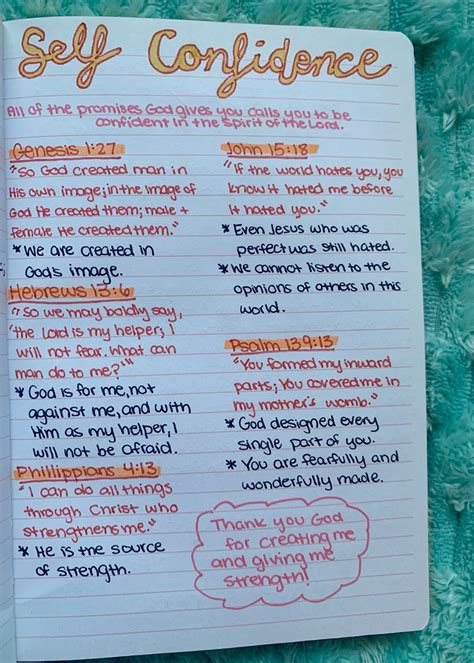 Self Confidence
All of the promises God gives you calls you to be
confident in the Spirit of the Lord.
Genesis 1:27
"So God created man in
His own image; in the image of
God He created them; male +
female He created them."
* We are created in
Gods image.
Hebrews 13:6
"So we may boldly say,
'the Lord is my helper; I
will not fear. What can
man do to me?'"
* God is for me, not
against me, and with
Him as my helper, I
will not be afraid.
Phillippians 4:13
"I can do all things
through Christ who
strengthens me."
* He is the source
of strength.
John 15:18
"If the world hates you, you
know it hated me before
it hated you."
* Even Jesus who was
perfect was still hated.
* We cannot listen to the
opinions of others in this
world.
Psalm 139:13
"You formed my inward
parts; You covered me in
my mother's womb."
* God designed every
single part of you.
* You are fearfully and
wonderfully made.
Thank you God
for creating me
and giving me
strength!